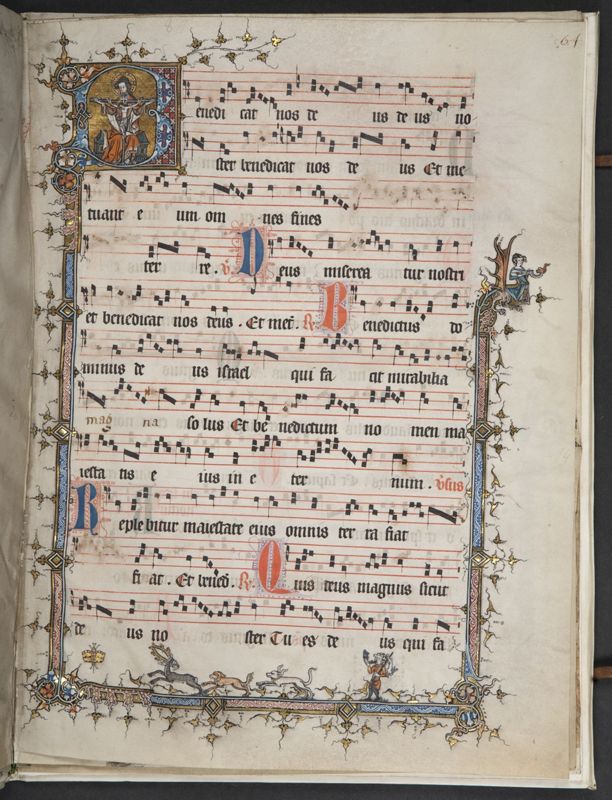 64
Benedi cat nos de us de us no
ster benedicat nos de us Et me
tuant e um om nes fines
ter re. V. Deus miserea tur nostri
et benedicat nos deus. Et met. R. Benedictus do
minus de us israel qui fa cit mirabilia
mag na so lus Et be nedictum no men ma
iesta tis e ius in e ter num. v̄sus
Reple bitur maiestate eius omnis ter ra fiat
fi at. Et bened. R. Quis deus magnus sicut
de us no ster Tu es de us qui fa